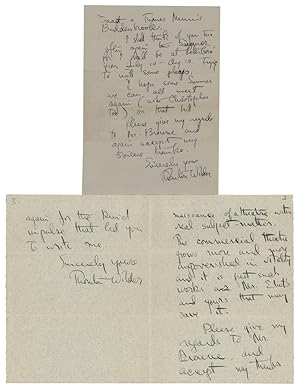 Smart - Thomas Mann's
Buddenbrooks.
I shall think of you two
often again this Summer
for I shall be at
from July 10 - Aug 10 trying
to write some plays.
I hope some Summer
we can all meet
again (with Christopher
too) on that hill.
Please give my regards
to Mr. Browne and
again accept my
sincere thanks.
Sincerely yours
Thornton Wilder
3
again for the kind
impulse that led you
to write me.
Sincerely yours
Thornton Wilder
2
naissance of a theatre with
real subject-matter.
The commercial theatre
grows more and more
impoverished in vitality
and it is just such
works as Mr. Eliot's
and yours that may
save it.
Please give my
regards to Mr.
Browne and
accept my thanks